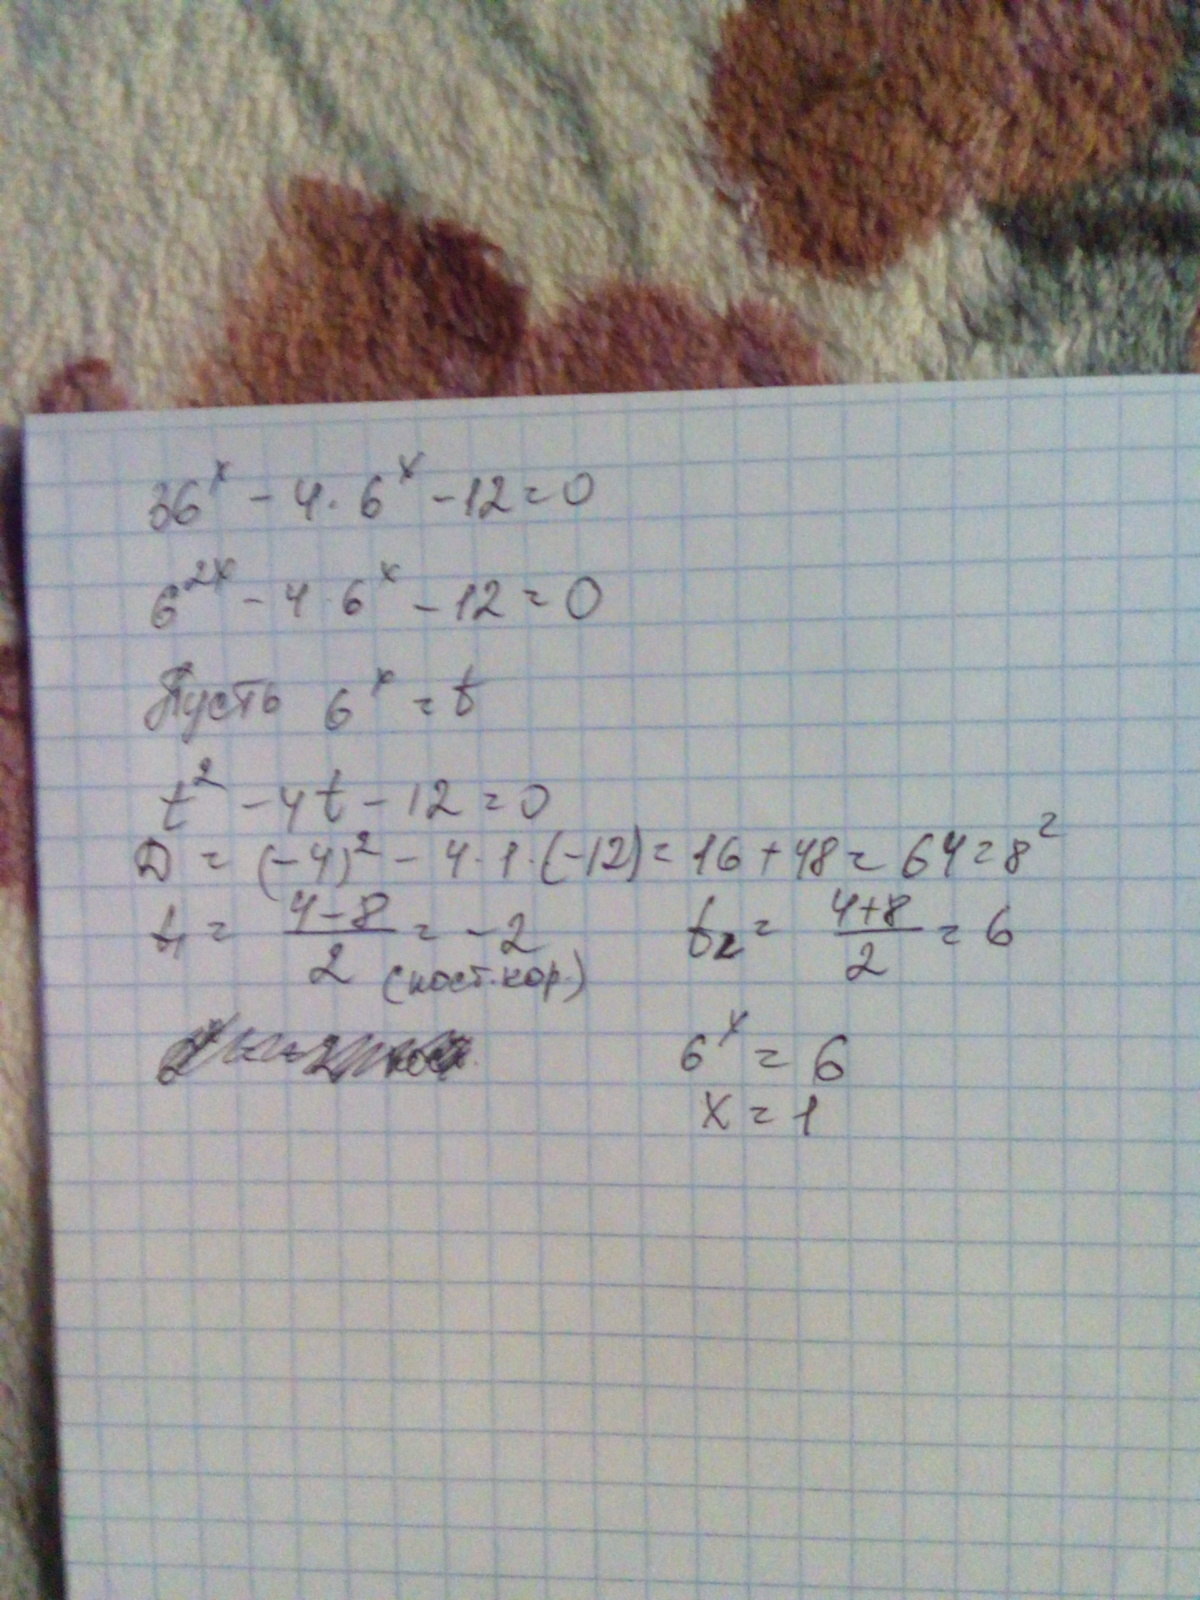 36^x - 4 · 6^x - 12 = 0
6^2x - 4 · 6^x - 12 = 0
Пусть 6^x = t
t^2 - 4t - 12 = 0
D = (-4)^2 - 4 · 1 · (-12) = 16 + 48 = 64 = 8^2
t1 = (4-8)/2 = -2 (пост.кор.) t2 = (4+8)/2 = 6
6^x = 6
x = 1